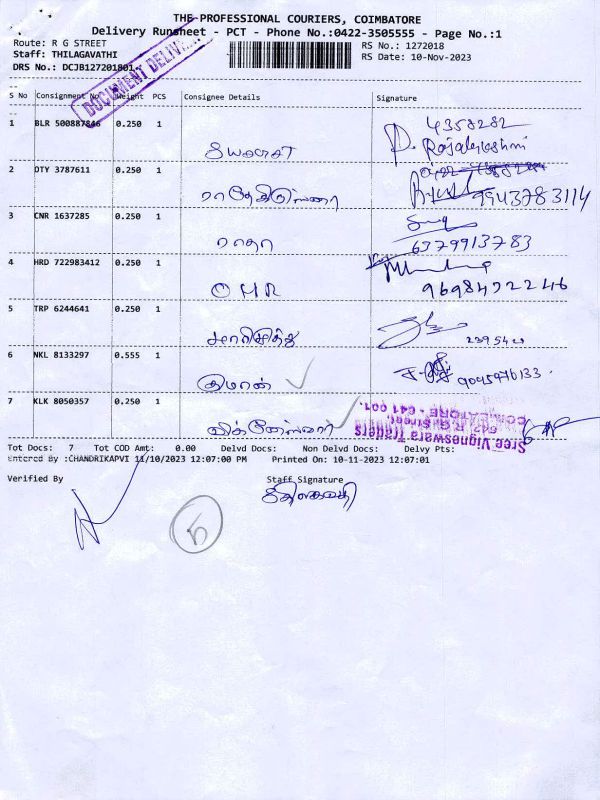 THE PROFESSIONAL COURIERS, COIMBATORE
Delivery Runsheet - PCT - Phone No.:0422-3505555 - Page No.:1
Route: R G STREET
RS No.: 1272018
Staff: THILAGAVATHI
RS Date: 10-Nov-2023
DRS No.: DCJB127201801
DOCUMENT DELIVERY
S No Consignment No Weight PCS Consignee Details Signature
1 BLR 500887846 0.250 1
4358282
P. Rajalakshmi
2 OTY 3787611 0.250 1
9943783114
3 CNR 1637285 0.250 1 ராதா
6379913783
4 HRD 722983412 0.250 1 OMR
9698422246
5 TRP 6244641 0.250 1
6 NKL 8133297 0.555 1 குமரன்
7 KLK 8050357 0.250 1 விக்னேஸ்வரா
Sree Vigneswara Traders
R.G. Street,
COIMBATORE - 641 001.
Tot Docs: 7 Tot COD Amt: 0.00 Delvd Docs: Non Delvd Docs: Delvy Pts:
Entered By :CHANDRIKAPVI 11/10/2023 12:07:00 PM Printed On: 10-11-2023 12:07:01
Verified By Staff Signature
5